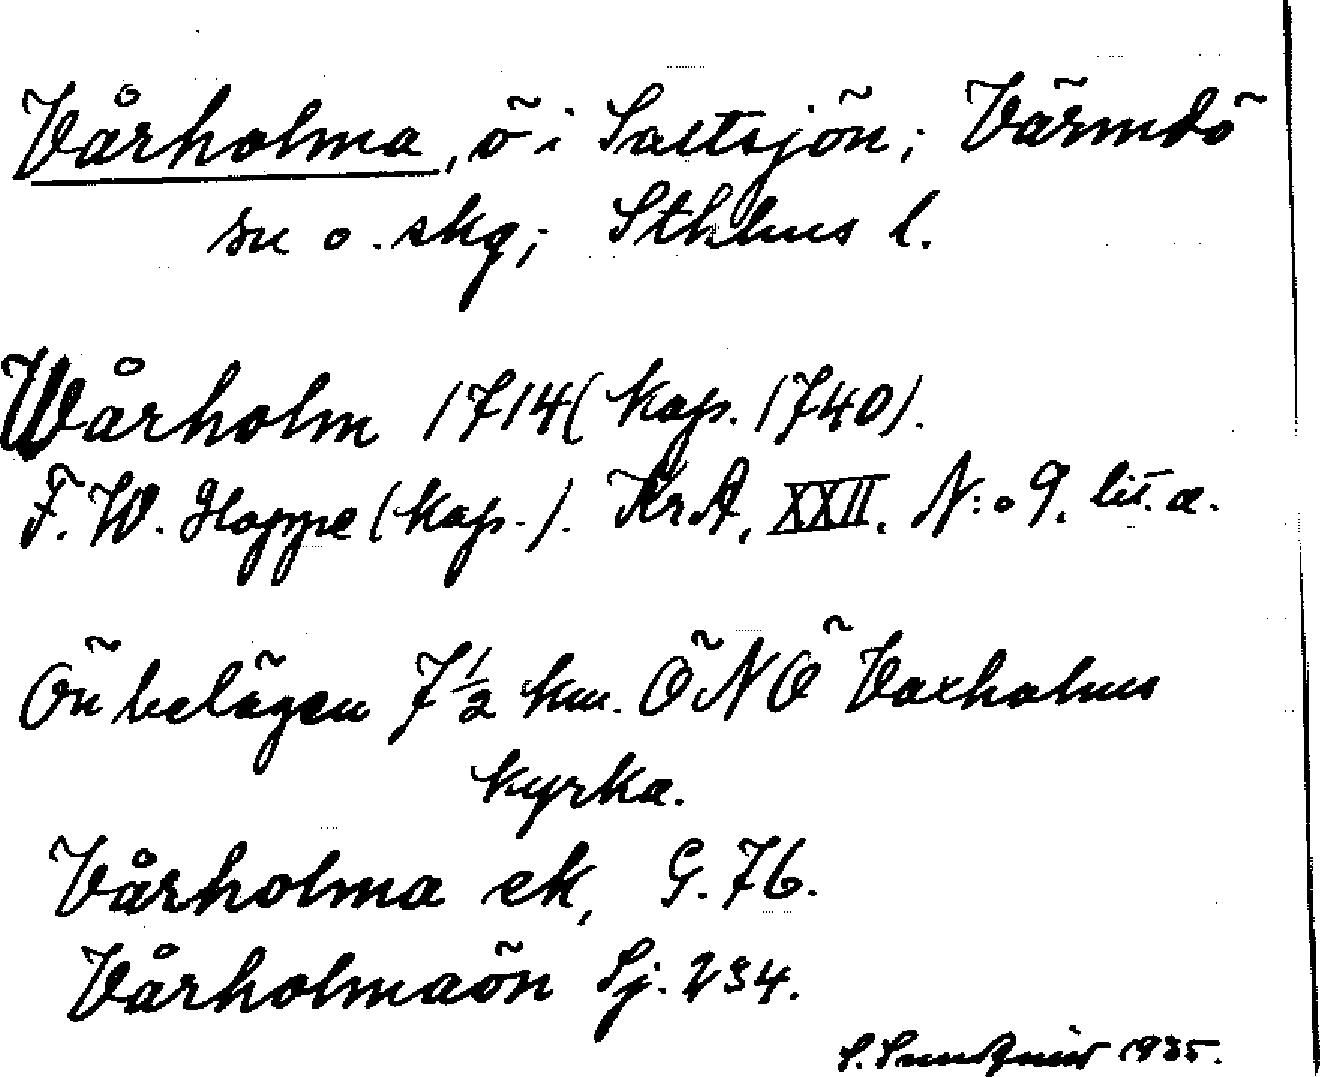 Vårholma, ö i Saltsjön; Värmdö
sn o. skg; Sthlms l.
Wårholm 1714 (kop. 1740).
F. W. Hoppe (kop.). KrA, XXII. N:o 9. lit. a.
Ön belägen 7 ½ km. ÖNÖ Vaxholms
kyrka.
Vårholma ek, G. 76.
Vårholmaön Sj. 234.
S. 1935.